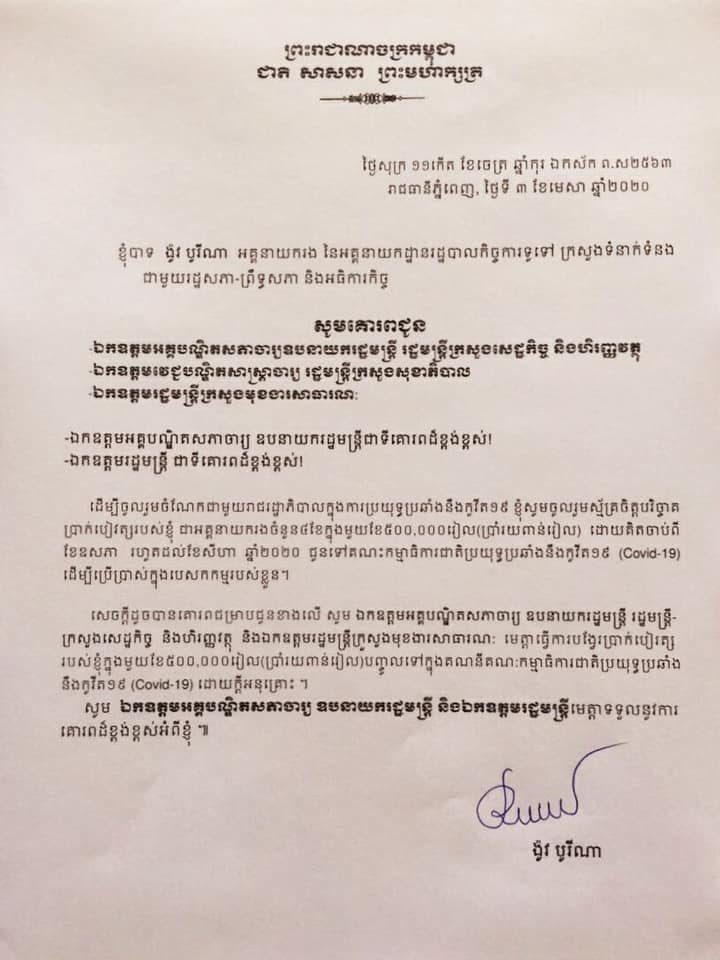 ព្រះរាជាណាចក្រកម្ពុជា
ជាតិ សាសនា ព្រះមហាក្សត្រ
ថ្ងៃសុក្រ ១១កើត ខែចេត្រ ឆ្នាំកុរ ឯកស័ក ព.ស២៥៦៣
រាជធានីភ្នំពេញ, ថ្ងៃទី ៣ ខែមេសា ឆ្នាំ២០២០
ខ្ញុំបាទ ង៉ូវ បូរីណា អគ្គនាយករង នៃអគ្គនាយកដ្ឋានរដ្ឋបាលកិច្ចការទូទៅ ក្រសួងទំនាក់ទំនង
ជាមួយរដ្ឋសភា-ព្រឹទ្ធសភា និងអធិការកិច្ច
សូមគោរពជូន
-ឯកឧត្តមអគ្គបណ្ឌិតសភាចារ្យឧបនាយករដ្ឋមន្ត្រី រដ្ឋមន្ត្រីក្រសួងសេដ្ឋកិច្ច និងហិរញ្ញវត្ថុ
-ឯកឧត្តមវេជ្ជបណ្ឌិតសាស្ត្រាចារ្យ រដ្ឋមន្ត្រីក្រសួងសុខាភិបាល
-ឯកឧត្តមរដ្ឋមន្ត្រីក្រសួងមុខងារសាធារណៈ
-ឯកឧត្តមអគ្គបណ្ឌិតសភាចារ្យ ឧបនាយករដ្ឋមន្ត្រីជាទីគោរពដ៏ខ្ពង់ខ្ពស់!
-ឯកឧត្តមរដ្ឋមន្ត្រី ជាទីគោរពដ៏ខ្ពង់ខ្ពស់!
ដើម្បីចូលរួមចំណែកជាមួយរាជរដ្ឋាភិបាលក្នុងការប្រយុទ្ធប្រឆាំងនឹងកូវីត១៩ ខ្ញុំសូមចូលរួមស្ម័គ្រចិត្តបរិច្ចាគ
ប្រាក់បៀវត្សរបស់ខ្ញុំ ជាអគ្គនាយករងចំនួន៤ខែក្នុងមួយខែ៥០០,០០០រៀល(ប្រាំរយពាន់រៀល) ដោយគិតចាប់ពី
ខែឧសភា រហូតដល់ខែសីហា ឆ្នាំ២០២០ ជូនទៅគណះកម្មាធិការជាតិប្រយុទ្ធប្រឆាំងនឹងកូវីត១៩ (Covid-19)
ដើម្បីប្រើប្រាស់ក្នុងបេសកកម្មរបស់ខ្លួន។
សេចក្តីដូចបានគោរពជម្រាបជូនខាងលើ សូម ឯកឧត្តមអគ្គបណ្ឌិតសភាចារ្យ ឧបនាយករដ្ឋមន្ត្រី រដ្ឋមន្ត្រី-
ក្រសួងសេដ្ឋកិច្ច និងហិរញ្ញវត្ថុ និងឯកឧត្តមរដ្ឋមន្ត្រីក្រសួងមុខងារសាធារណៈ មេត្តាធ្វើការបង្វែរប្រាក់បៀវត្ស
របស់ខ្ញុំក្នុងមួយខែ៥០០,០០០រៀល(ប្រាំរយពាន់រៀល)បញ្ចូលទៅក្នុងគណនីគណៈកម្មាធិការជាតិប្រយុទ្ធប្រឆាំង
នឹងកូវីត១៩ (Covid-19) ដោយក្តីអនុគ្រោះ ។
សូម ឯកឧត្តមអគ្គបណ្ឌិតសភាចារ្យ ឧបនាយករដ្ឋមន្ត្រី និងឯកឧត្តមរដ្ឋមន្ត្រីមេត្តាទទួលនូវការ
គោរពដ៏ខ្ពង់ខ្ពស់អំពីខ្ញុំ ៕
ង៉ូវ បូរីណា